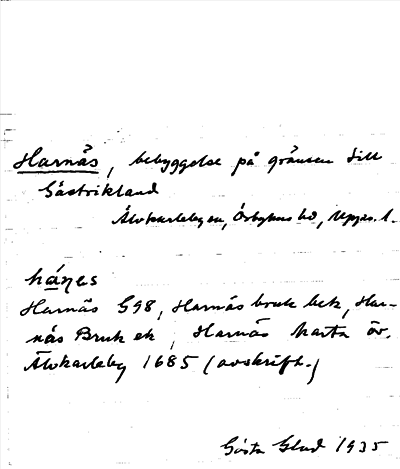 Harnäs, bebyggelse på gränsen till
Gästrikland
Älvkarleby sn, Örbyhus hd, Uppsa. l.
háṇes
Harnäs G98, Harnäs bruk bek, Har-
näs Bruk ek, Harnäs karta öv.
Älvkarleby 1685 (avskrift.)
Gösta Glad 1935